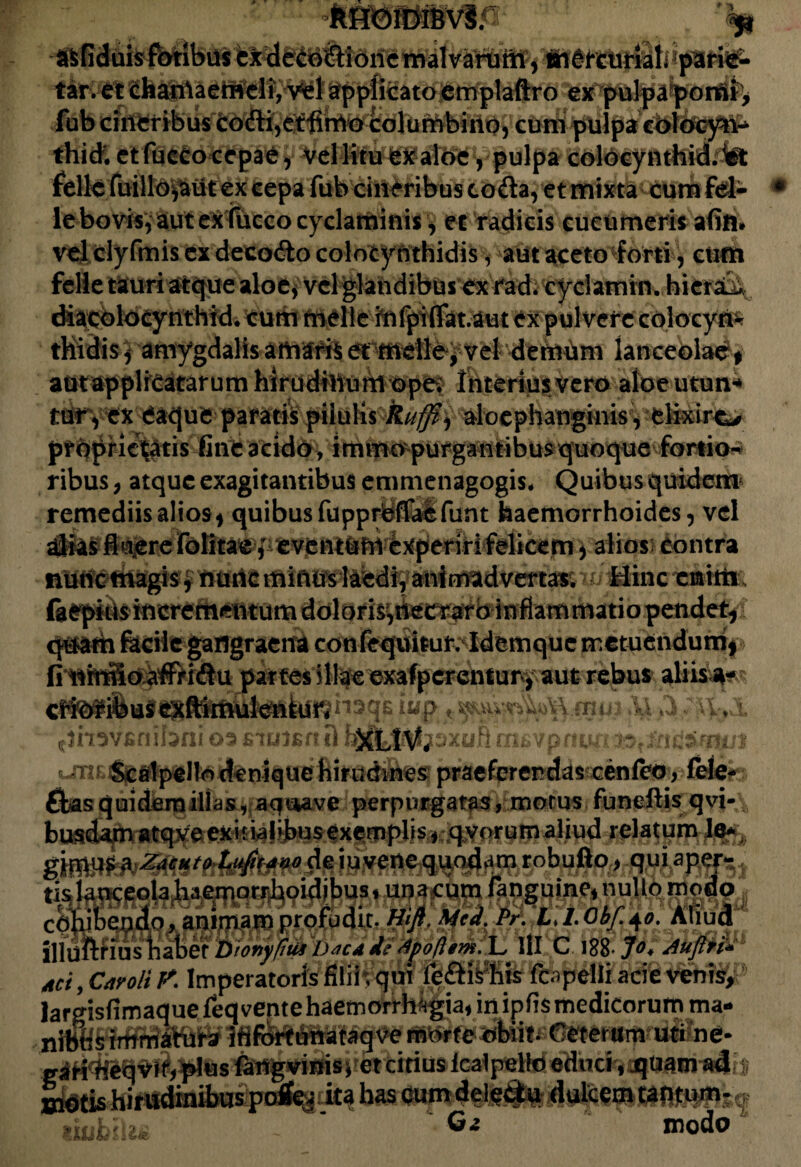 asfiduis fotibus ex decoctione malvarum, mercurial. parie-
tar. et chamaemeli, vel applicato emplastro ex pulpa pomi,
sub cineribus cocti, et fimo columbino, cum pulpa colocyn-
thid. et succo cepae, vel litu ex aloe, pulpa colocynthid. et
felle suillo, aut ex cepa sub cineribus cocta, et mixta cum fel-
le bovis, aut ex succo cyclaminis, et radicis cucumeris asin.
vel clysmis ex decocto colocynthidis, aut aceto forti, cum
felle tauri atque aloe, vel glandibus ex rad. cyclamin. hiera
diacolocynthid. cum melle inspissat. aut ex pulvere colocyn-
thidis, amygdalis amaris et melle, vel demum lanceolae,
aut applicatarum hirudinum ope. Interius vero aloe utun-
tur, ex eaque paratis pilulis Ruffi, aloephanginis, elixire
proprietatis sine acido, immo purgantibus quoque fortio-
ribus, atque exagitantibus emmenagogis. Quibus quidem
remediis alios, quibus suppressae sunt haemorrhoides, vel
alias fluere solitae, eventum experiri felicem, alios contra
nunc magis, nunc minus laedi, animadvertas. Hinc enim
saepius incrementum doloris, nec raro inflammatio pendet,
quam facile gangraena consequitur. Idemque metuendum,
si nimio affrictu partes illae exasperentur, aut rebus aliis a-
crioribus exstimulentur.
XLIV.
Scalpello denique hirudines praeferendas censeo, sele-
ctas quidem illas, aquave perpurgatas, motus funestis qvi-
busdam atqve exitialibus exemplis, qvorum aliud relatum le-
gimus a Zacuto Lusitano de iuvene quodam robusto, qui aper-
tis lanceola haemorrhoidibus, una cum sanguine, nullo modo
cohibendo, animam profudit. Hist. Med. Pr. L. I. Obs. 40. Aliud
illustrius habet Dionysius Daca de Apostem. L III C 188. Jo. Austri-
aci, Caroli V. Imperatoris filii, qui sectis his scapelli acie venis,
largisfimaque seqvente haemorrhagia, in ipsis medicorum ma-
nibus immatura infortunataqve morte obiit. Ceterum uti ne-
gari neqvit, plus sangvinis, et citius scalpello educi, quam ad
motis hirudinibus posse, ita has cum delectu dulcem tantum-
G2 modo